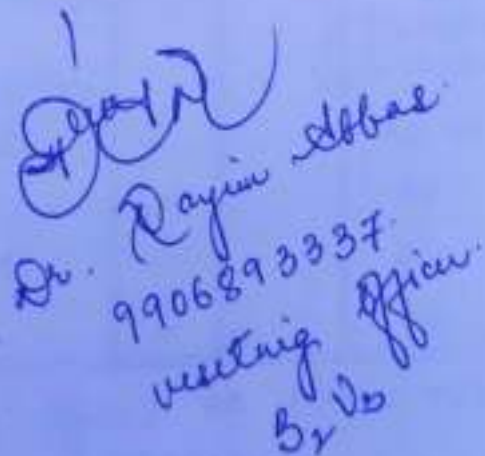 Dr. Rayim Abbas
9906893337
visiting officer